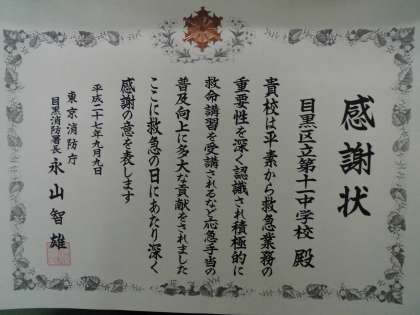 感謝状
目黒区立第十一中学校 殿
貴校は平素から救急業務の
重要性を深く認識され積極的に
救命講習を受講されるなど応急手当の
普及向上に多大な貢献をされました
ここに救急の日にあたり深く
感謝の意を表します
平成二十八年九月九日
東京消防庁
目黒消防署長 永山智雄